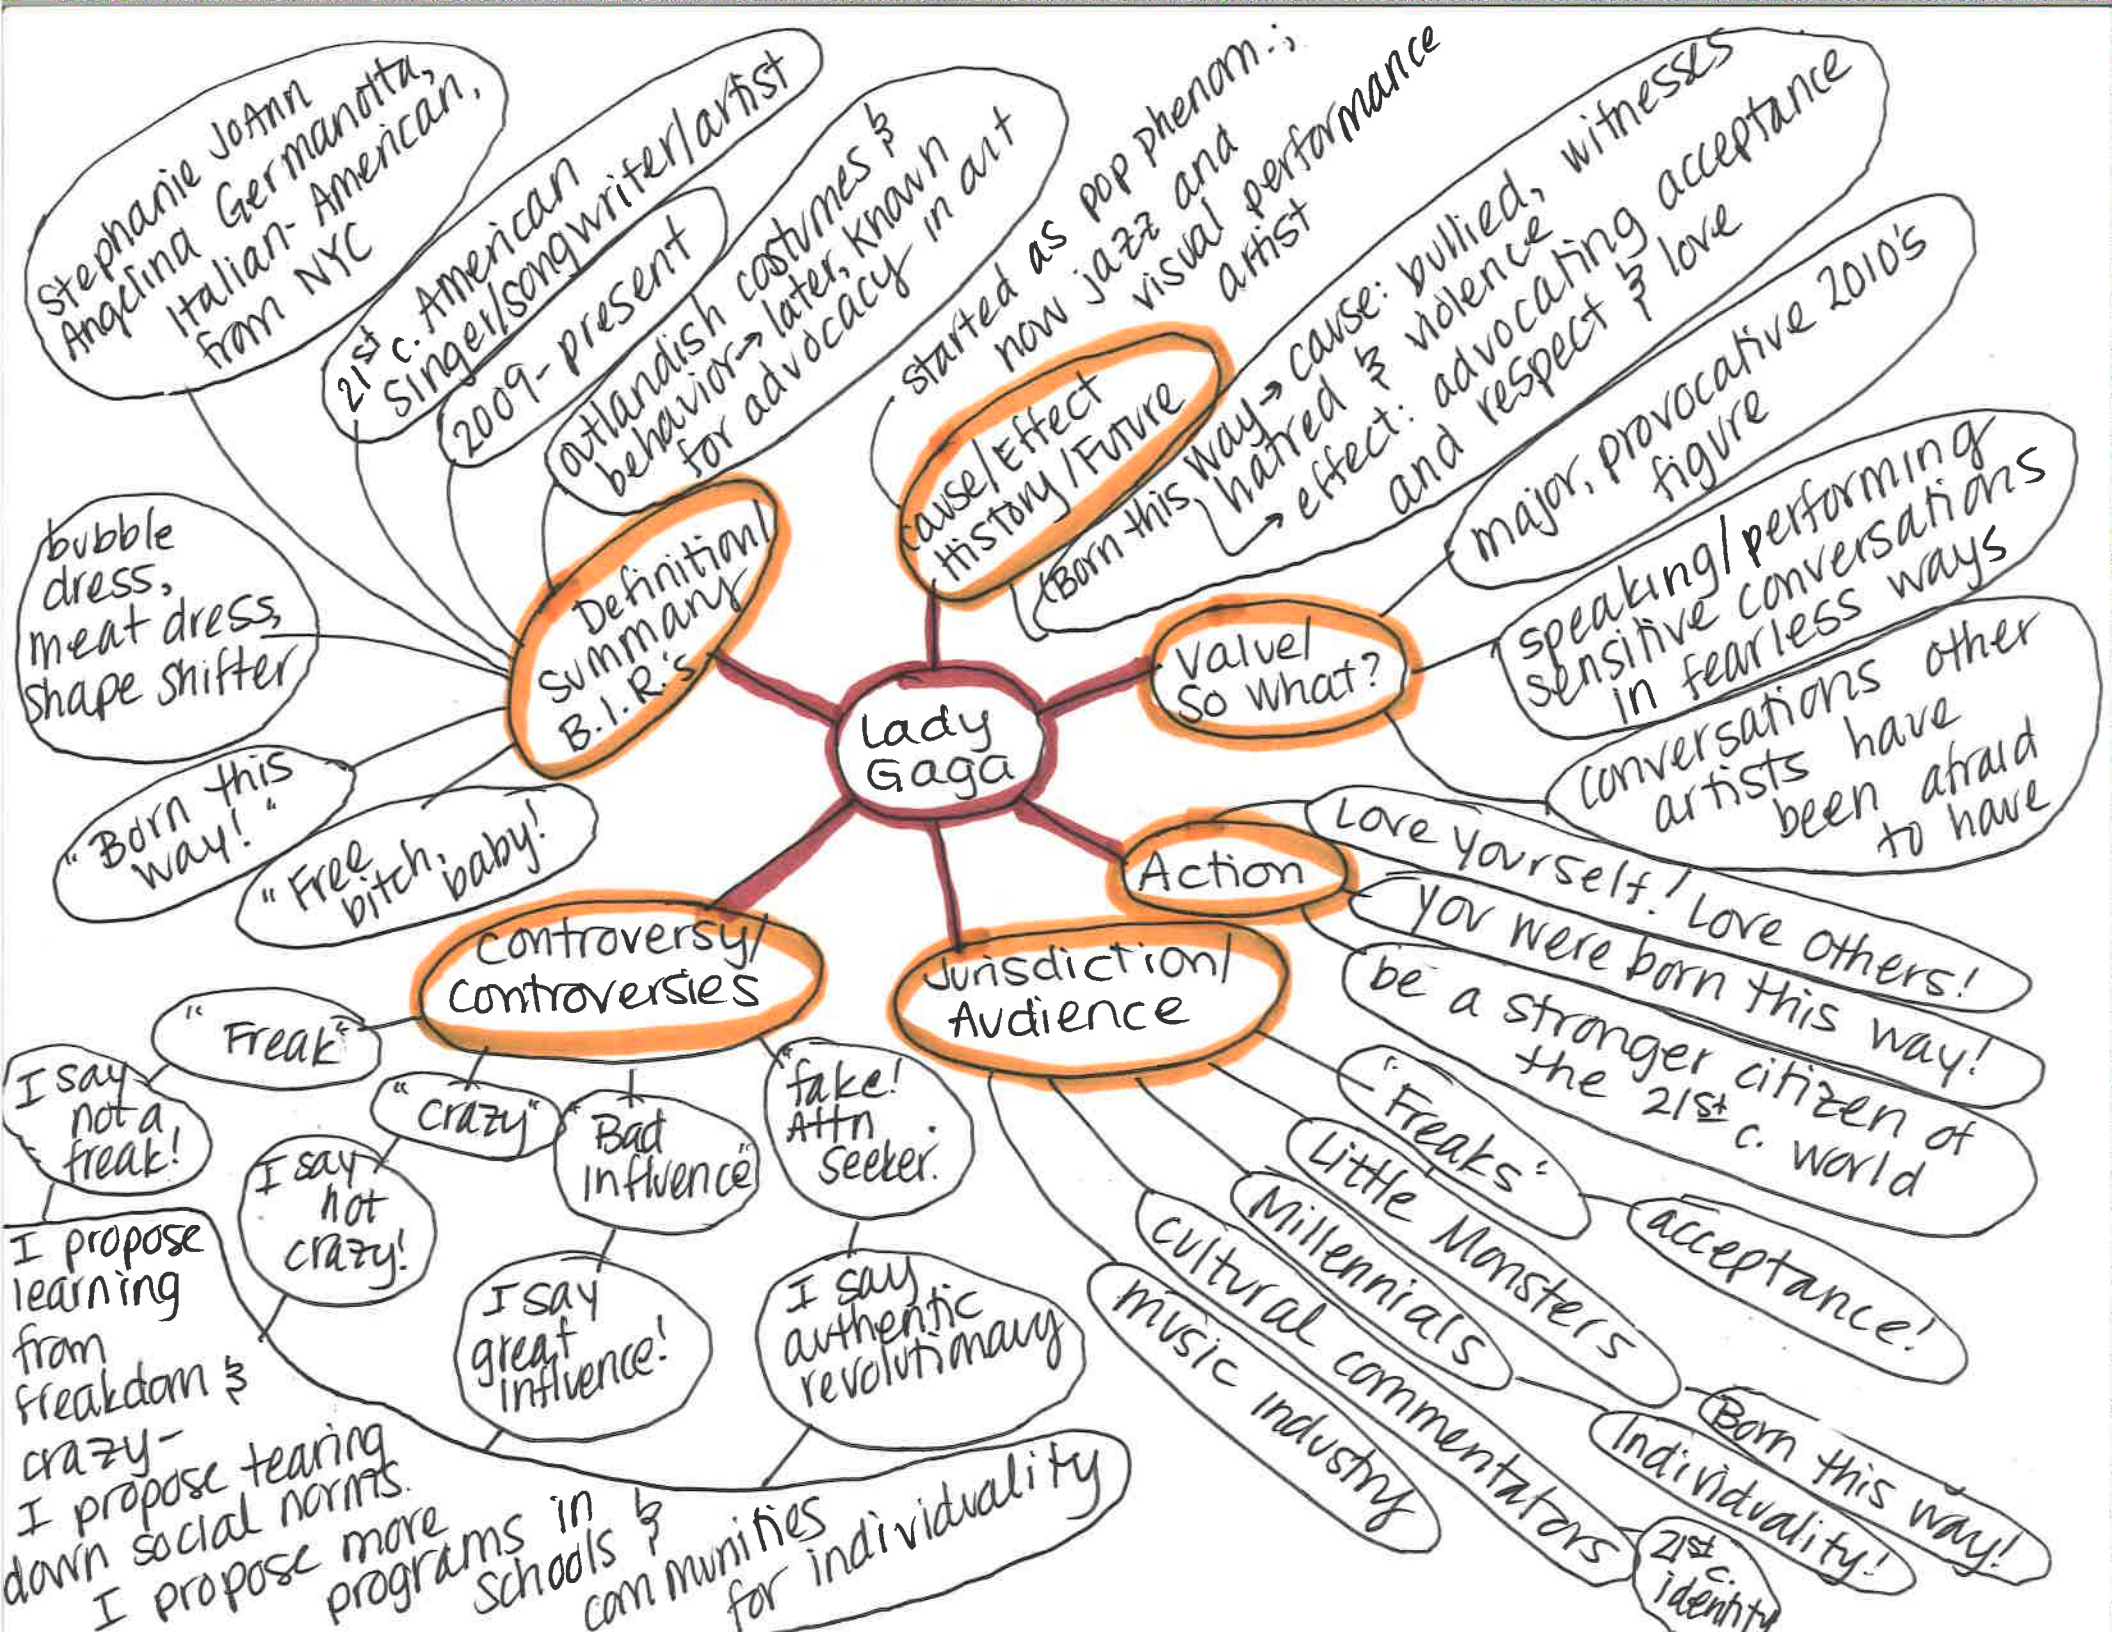 Lady
Gaga
Definition/
Summary
B.I.R.'s
Stephanie JoAnn
Angelina Germanotta,
Italian-American,
from NYC
21st c. American
Singer/songwriter/artist
2009-present
outlandish costumes &
behavior→ later, known
for advocacy in art
bubble
dress,
meat dress,
shape shifter
"Born this
way!"
"Free
bitch,
baby!
Cause/Effect
History/Future
started as pop phenom.;
now jazz and
visual performance
artist
(Born this way→ cause: bullied, witnesses
hatred & violence
→ effect: advocating acceptance
and respect & love
Value/
So What?
major, provocative 2010's
figure
speaking/performing
sensitive conversations
in fearless ways
conversations other
artists have
been afraid
to have
Action
Love yourself! Love others!
You were born this way!
be a stronger citizen of
the 21st c. world
Jurisdiction/
Audience
"Freaks"
acceptance!
Little Monsters
Born this way!
Millennials
Individuality!
cultural commentators
21st
c.
identity
music industry
Controversy/
Controversies
"Freak"
I say
not a
freak!
"crazy"
I say
not
crazy!
"Bad
Influence"
I say
great
influence!
"fake!
Attn
seeker.
I say
authentic
revolutionary
I propose
learning
from
freakdom &
crazy-
I propose tearing
down social norms.
I propose more
programs in
schools &
communities
for individuality